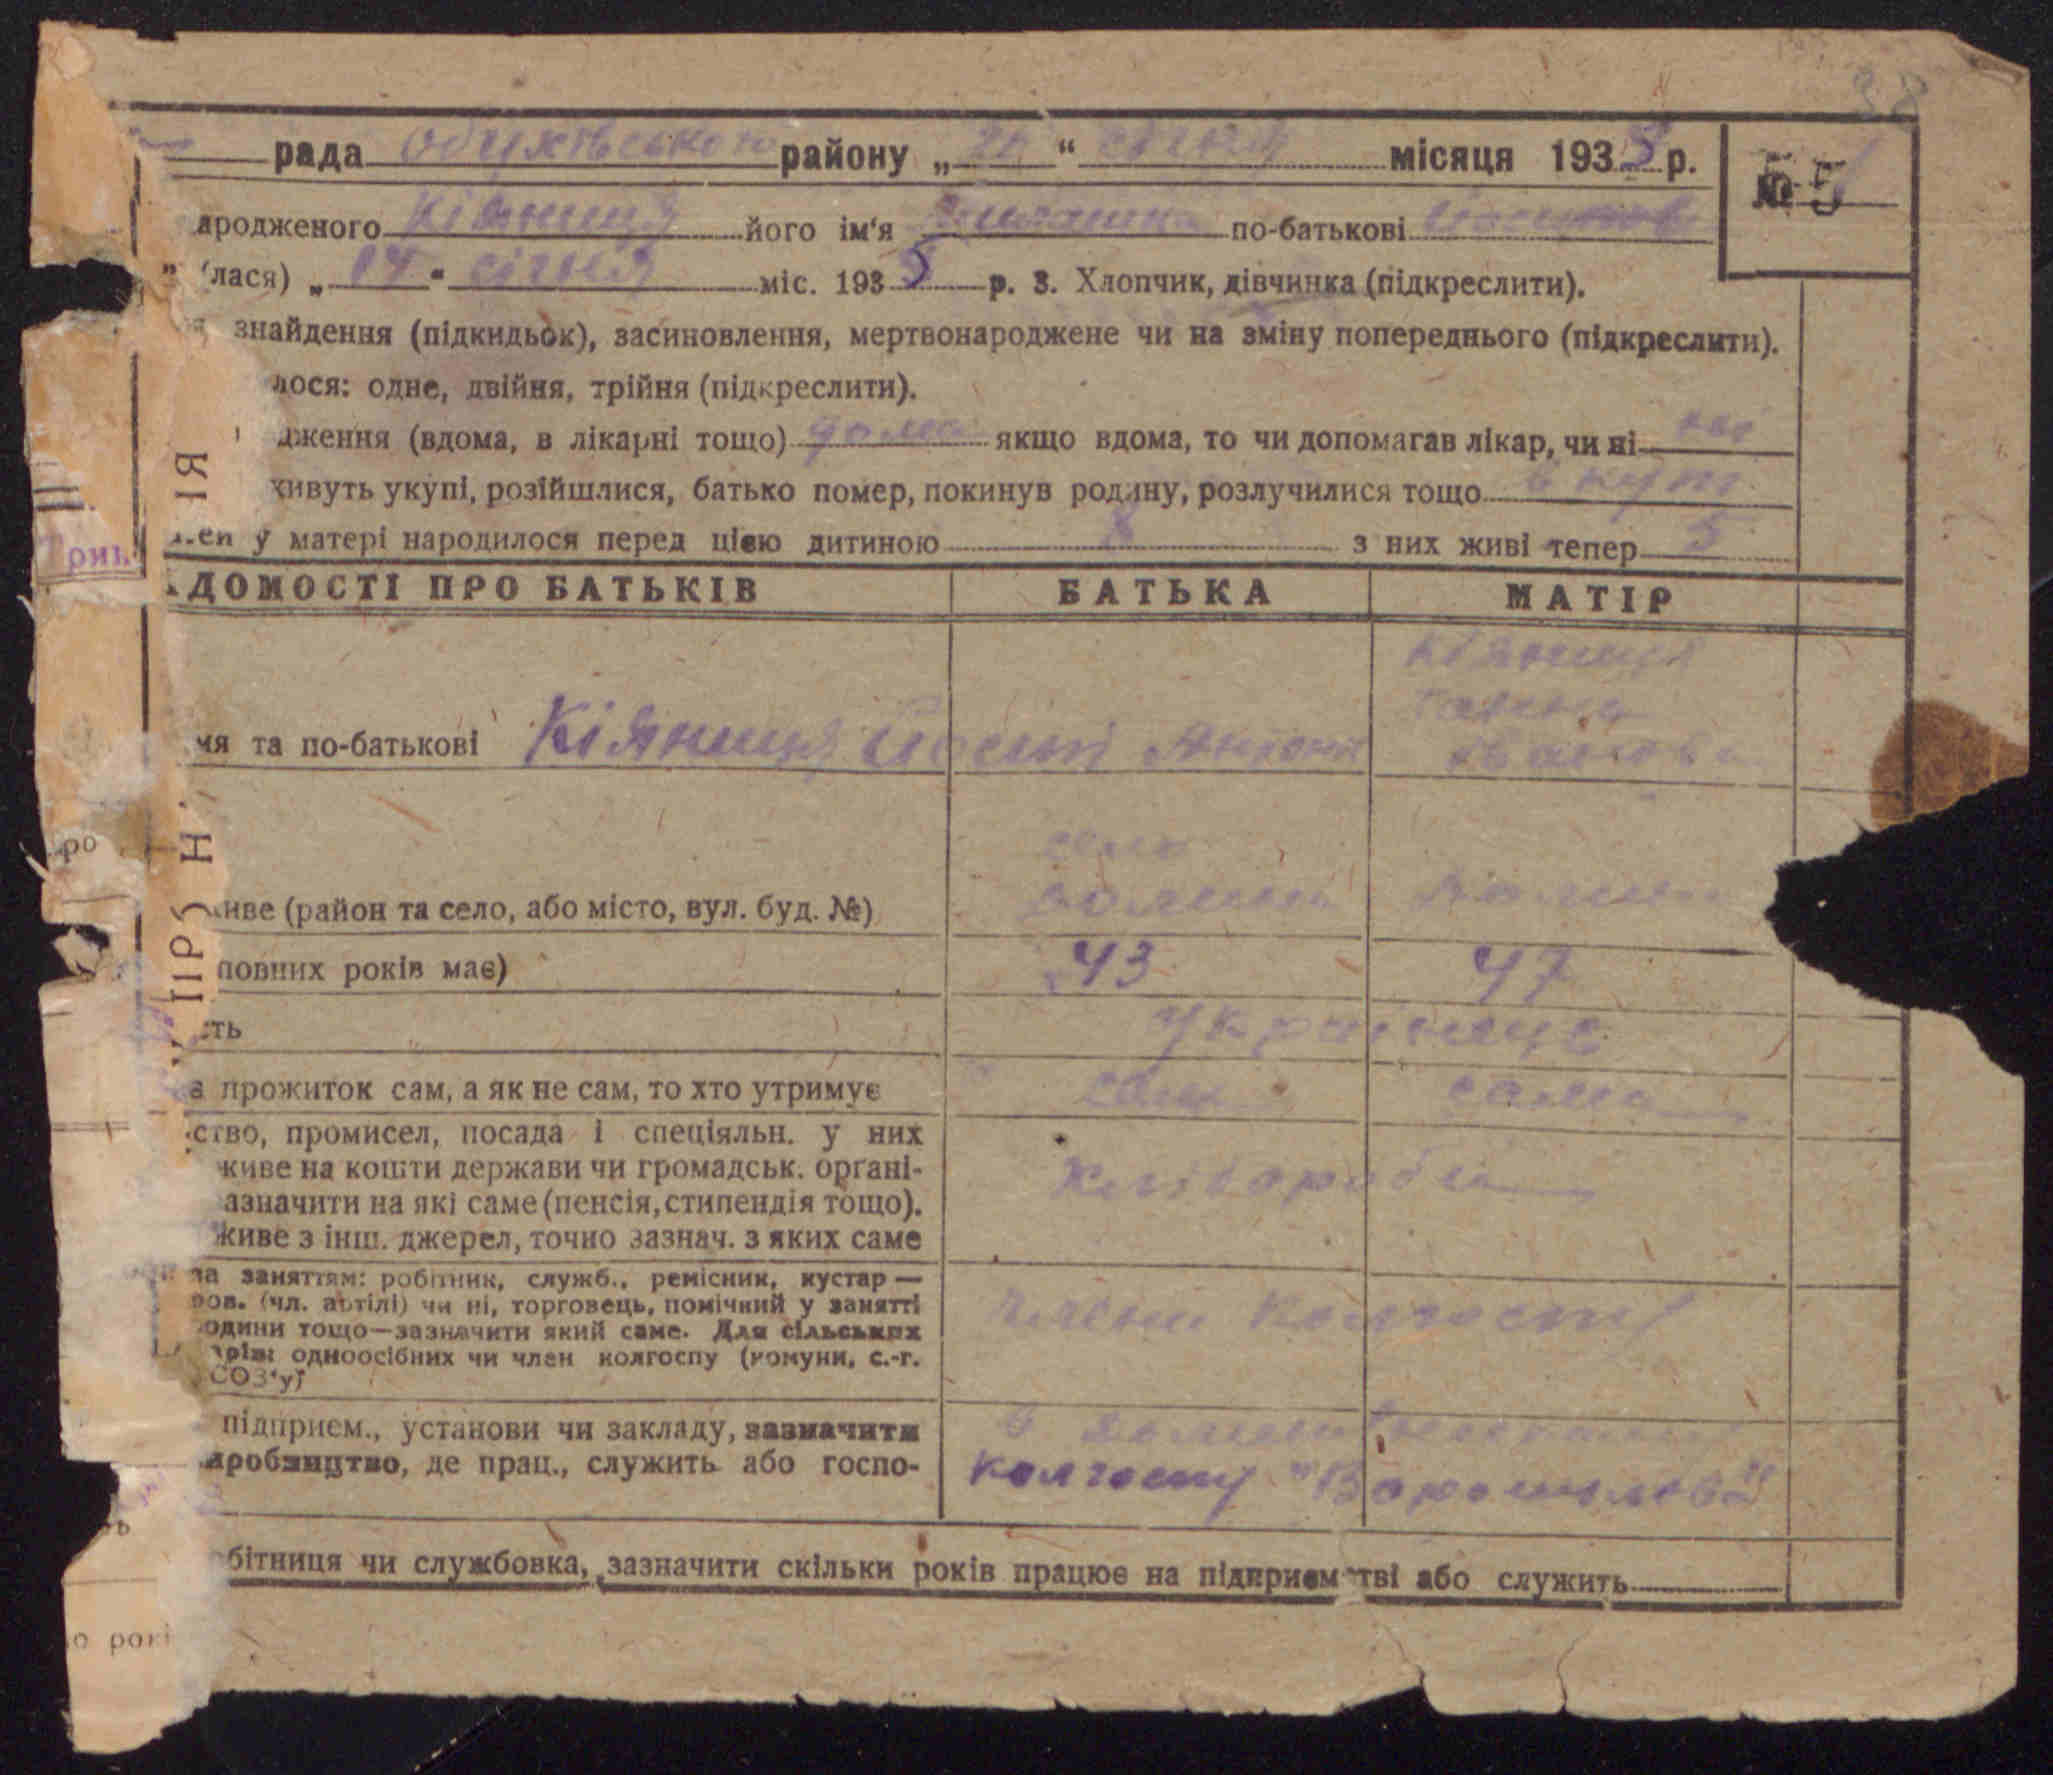 рада Обухівського району „ “ січня місяця 1935 р.
№ 5
ародженого Кіяниця його ім'я по-батькові
лася) „ 14 “ січня міс. 1935 р. 3. Хлопчик, дівчинка (підкреслити).
знайдення (підкидьок), засиновлення, мертвонароджене чи на зміну попереднього (підкреслити).
лося: одне, двійня, трійня (підкреслити).
дження (вдома, в лікарні тощо) дома якщо вдома, то чи допомагав лікар, чи ні ні
живуть укупі, розійшлися, батько помер, покинув родину, розлучилися тощо в купі
ей у матері народилося перед цією дитиною 8 з них живі тепер 5
ДОМОСТІ ПРО БАТЬКІВ БАТЬКА МАТІР
мя та по-батькові Кіяниця Антон Кіяниця
Іванов
село
живе (район та село, або місто, вул. буд. №)
повних років має) 43 47
сть Українець
а прожиток сам, а як не сам, то хто утримує сам сама
ство, промисел, посада і спеціяльн. у них
живе на кошти держави чи громадськ. орґані-
азначити на які саме (пенсія, стипендія тощо). Хлібороби
живе з інш. джерел, точно зазнач. з яких саме
за заняттям: робітник, служб., ремісник, кустар —
ров. (чл. артілі) чи ні, торговець, помічний у занятті
одини тощо—зазначити який саме. Для сільських член колгоспу
арів: одноосібних чи член колгоспу (комуни, с.-г.
СОЗ'у)
підприєм., установи чи закладу, зазначити
иробництво, де прац., служить або госпо- колгоспу "Ворошилова"
бітниця чи службовка, зазначити скільки років працює на підприємстві або служить